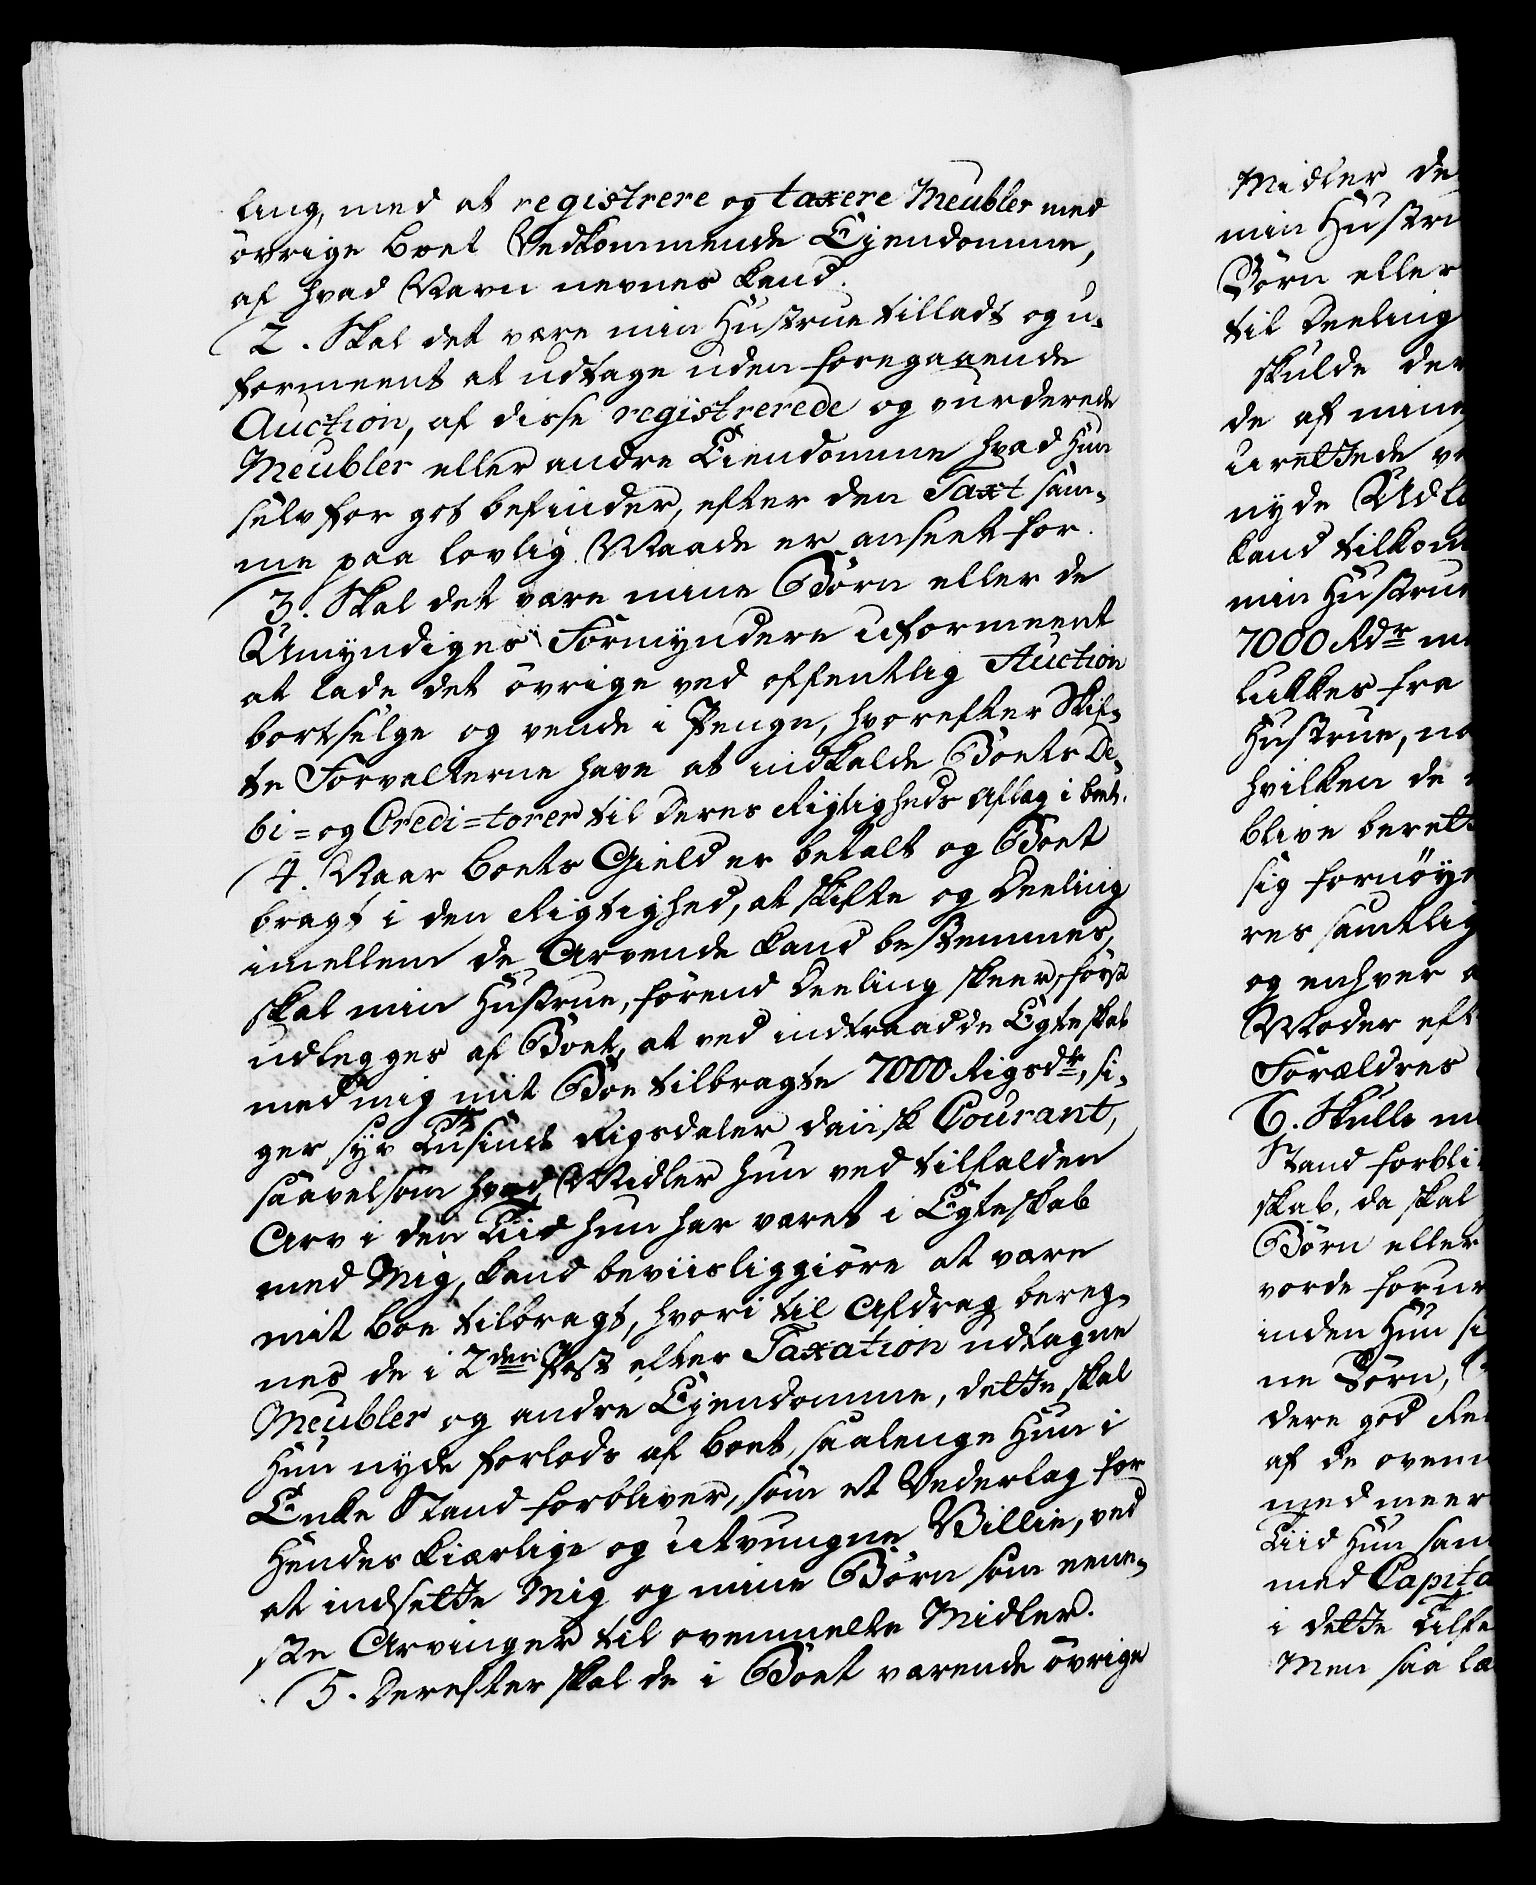 ling, med at registrere og taxere Meubler med
övrige Boet Vedkommende Eyendomme,
af hvad Navn nevnes kand.
2. Skal det være min Hustrue tilladt og u-
formeent at udtage uden foregaaende
Auction, af disse registrerede og vurderede
Meubler eller andre Eiendomme hvad Hun
selv for got befinder, efter den Taxt sam-
me paa lovlig Maade er anseet for.
3. Skal det være mine Börn eller de
Umyndiges Formyndere uformeent
at lade det övrige ved offentlig Auction
bortselge og vende i Penge, hvorefter Skif-
te Forvalterne have at indkalde Boets De-
bi= og Credi=torer til deres Rigtigheds Aflæg i Boet.
4. Naar Boets Gield er betalt og Boet
bragt i den Rigtighed, at Skifte og Deeling
imellem de Arvende kand bestemmes,
skal min Hustrue, förend Deeling skeer, först
udlegges af Boet, at ved indtraadde Egteskab
med mig mit Boe tilbragte 7000 Rigsdr, si-
ger syv Tusinde Rigsdaler dansk Courant,
saavelsom hvad Midler hun ved tilfalden
Arv i den Tiid hun har været i Egteskab
med Mig, kand beviisliggiöre at være
mit Boe tilbragt, hvori til Afdrag bereg-
nes de i 2den Post efter Taxation udtagne
Meubler og andre Eyendomme, dette skal
Hun nyde forlods af Boet, saalenge Hun i
Enke Stand forbliver, som et Vederlag for
Hendes kiærlige og utvungne Villie, ved
at indsette Mig og mine Börn som eene-
ste Arvinger til ovenmelte Midler.
5. Derefter skal de i Boet værende övrige
Midler de
min Hustru
Börn eller
til Deeling
skulde der
de af mine
urettede
nyde
kand tilkom
min Hustrue
7000 Rdr
lukkes fra
Hustrue,
hvilken de
blive berett
sig fornöye
res samtlig
og enhver
Moder eft
Forældres
6. Skulle
Stand forbli
skab, da skal
Börn eller
vorde forur
inden Hun si
ne Börn,
dere god
af de oven
med meer
Tiid Hun sam
med Capita
i dette Tilfe
Men saa læ